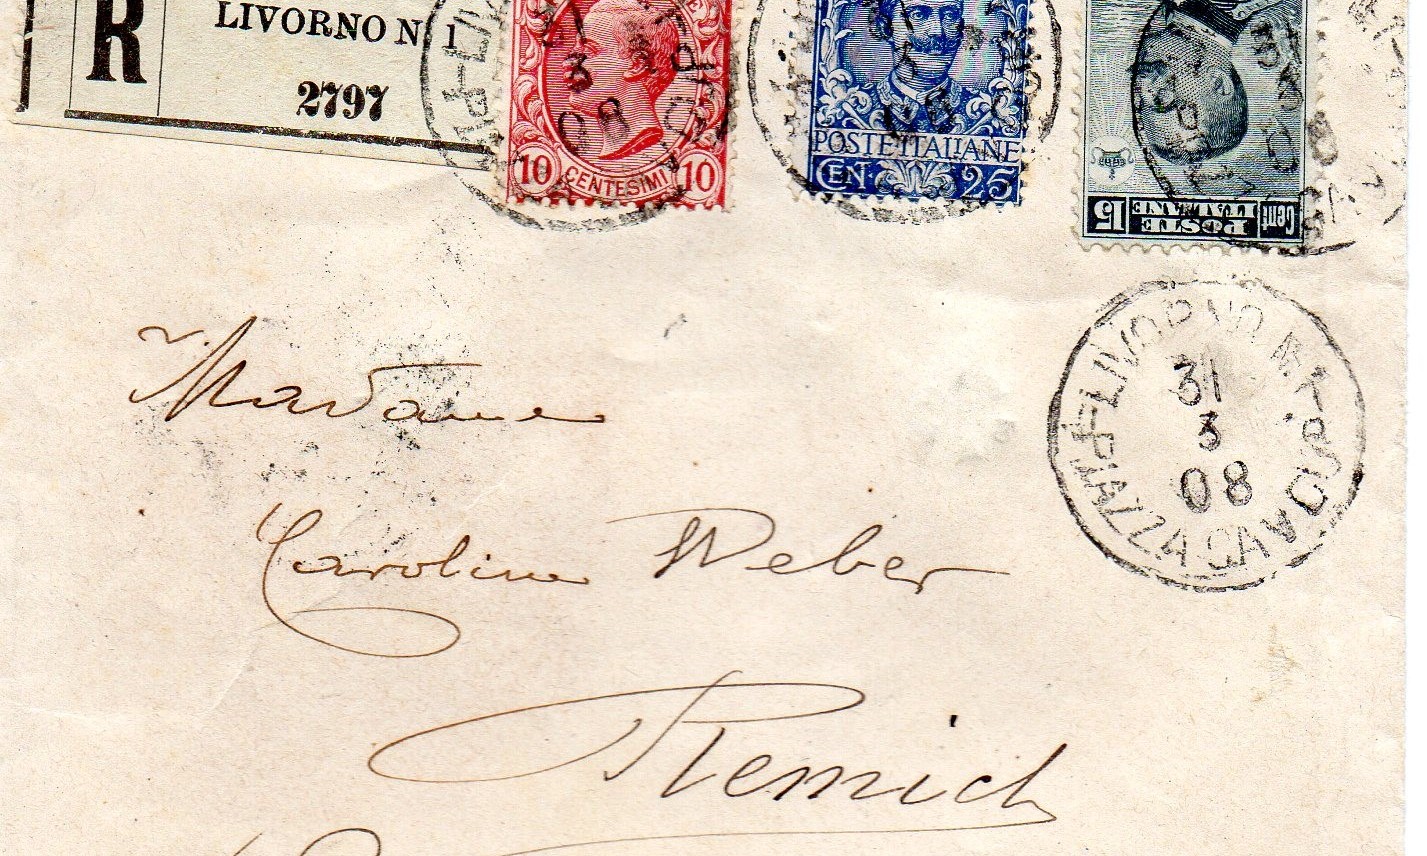 R
LIVORNO N. 1
2797
31
3
08
10 CENTESIMI 10
POSTE ITALIANE
CEN. 25
Cent POSTE ITALIANE 15
LIVORNO
31
3
08
PIAZZA CAVOUR
Madame
Caroline Weber
Remich